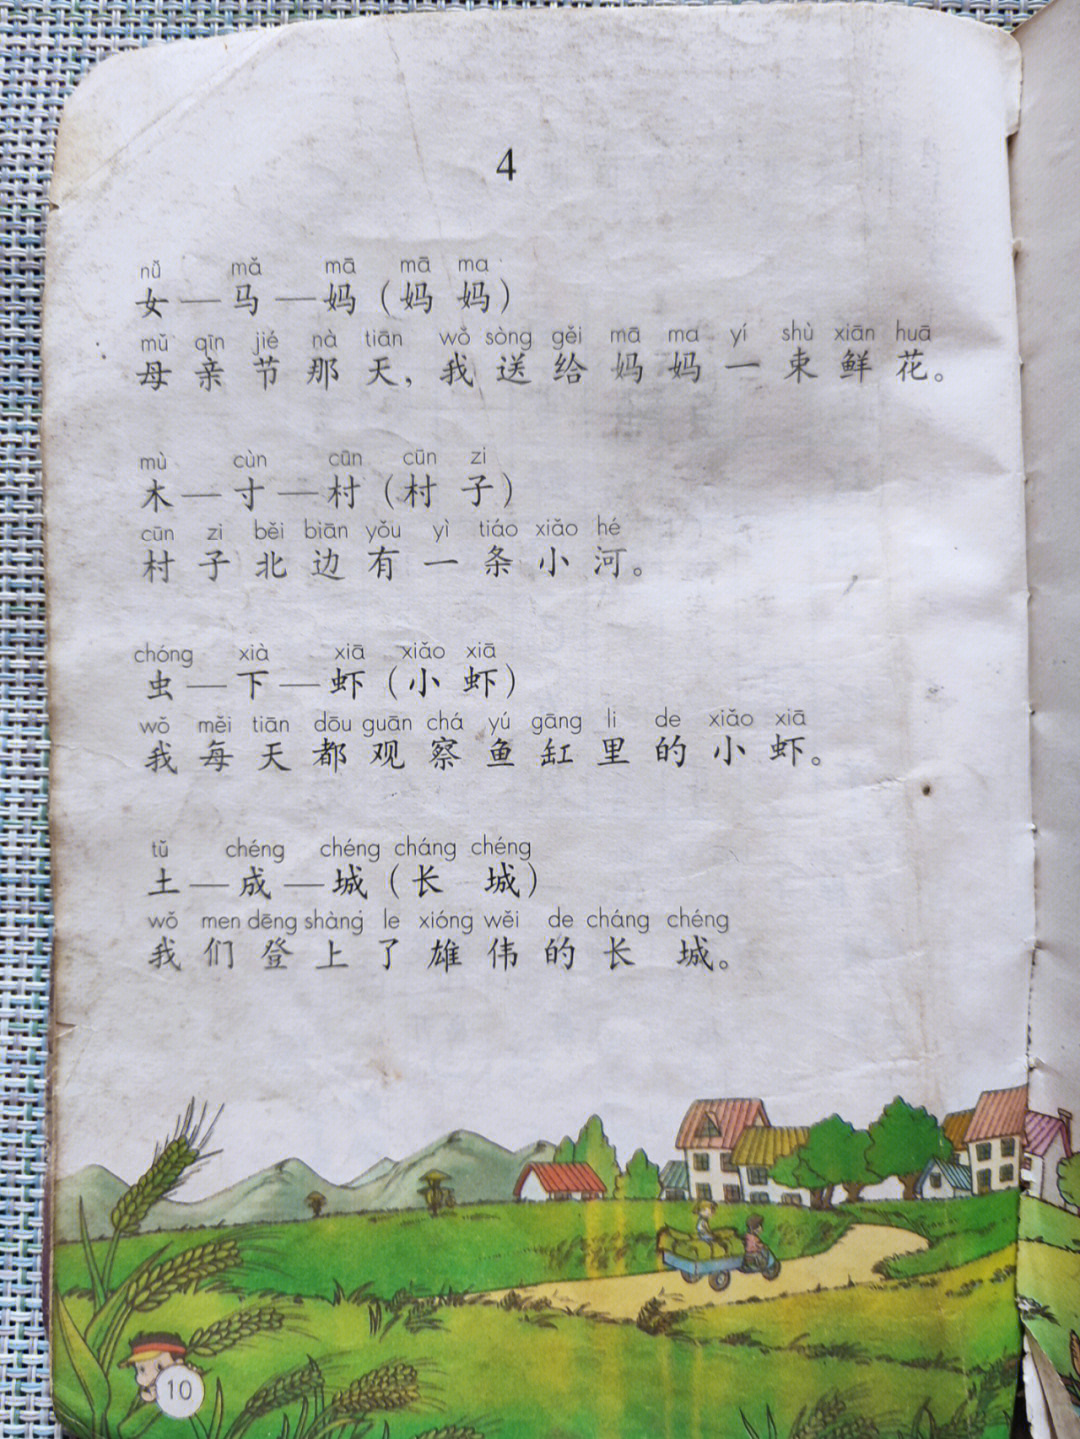 4
nǚ mǎ mā mā ma
女—马—妈(妈 妈)
mǔ qīn jié nà tiān wǒ sòng gěi mā ma yí shù xiān huā
母亲节那天,我送给妈妈一束鲜花。
mù cùn cūn cūn zi
木—寸—村(村 子)
cūn zi běi biān yǒu yì tiáo xiǎo hé
村子北边有一条小河。
chóng xià xiā xiǎo xiā
虫—下—虾(小 虾)
wǒ měi tiān dōu guān chá yú gāng li de xiǎo xiā
我每天都观察鱼缸里的小虾。
tǔ chéng chéng cháng chéng
土—成—城(长 城)
wǒ men dēng shàng le xióng wěi de cháng chéng
我们登上了雄伟的长城。
10